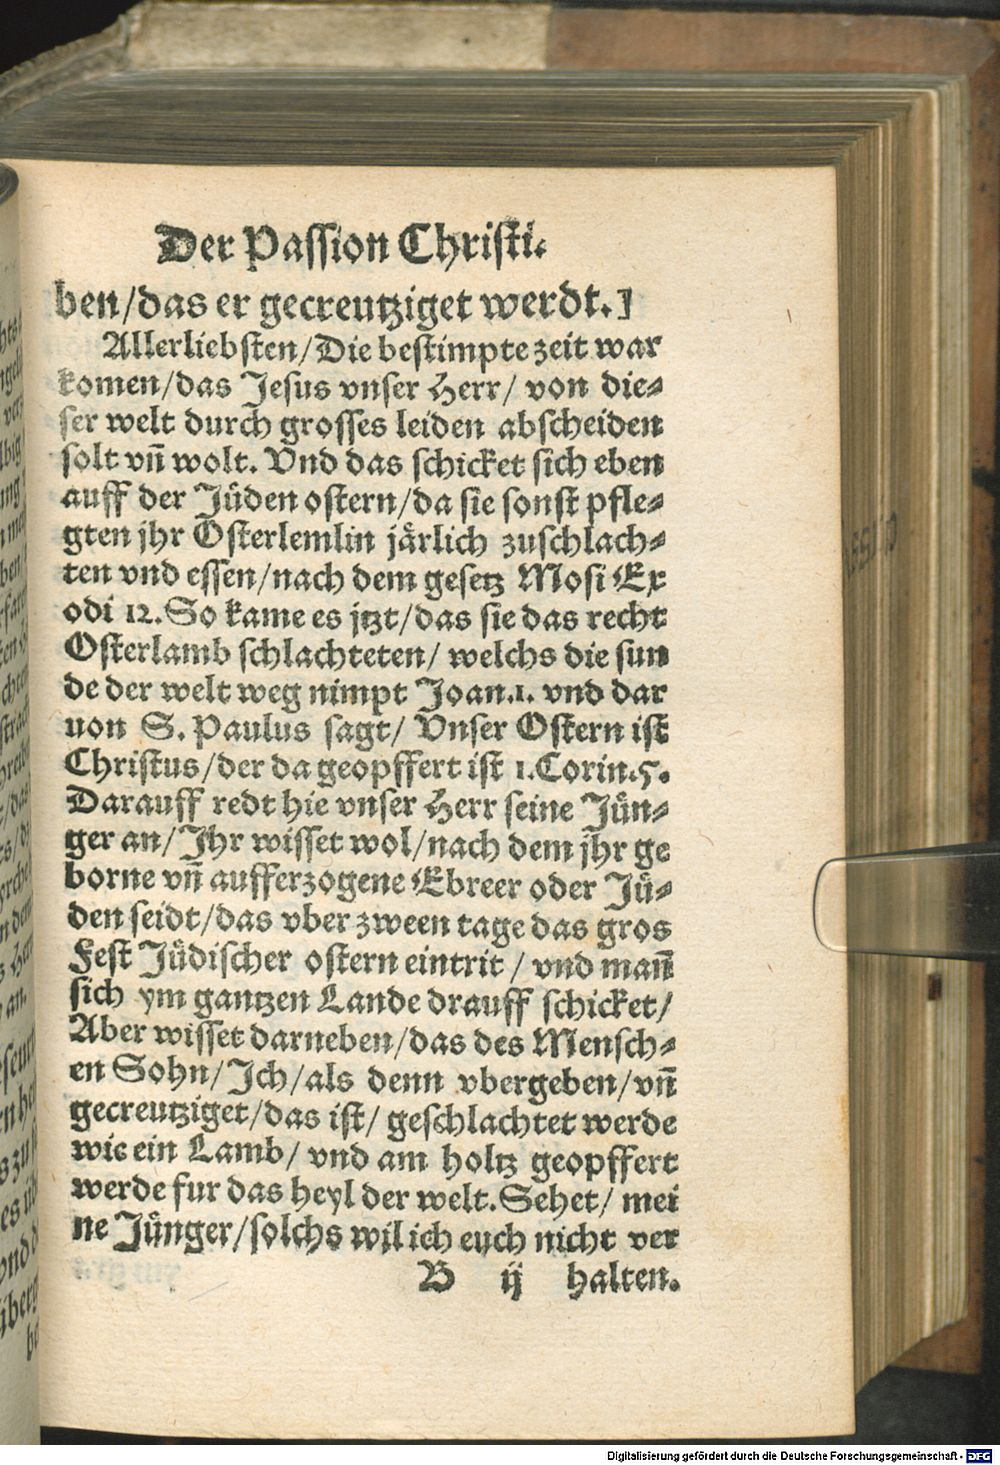 Der Passion Christi.
ben/das er gecreutziget werdt.]
Allerliebsten/Die bestimpte zeit war
komen/das Jesus vnser Herr/ von die⸗
ser welt durch grosses leiden abscheiden
solt vn̄ wolt. Vnd das schicket sich eben
auff der Jüden ostern/da sie sonst pfle⸗
gten jhr Osterlemlin järlich zuschlach⸗
ten vnd essen/nach dem gesetz Mosi Ex
odi 12. So kame es jtzt/das sie das recht
Osterlamb schlachteten/ welchs die sun
de der welt weg nimpt Joan.1. vnd dar
uon S. Paulus sagt/ Vnser Ostern ist
Christus/der da geopffert ist 1.Corin.5.
Darauff redt hie vnser Herr seine Jün⸗
ger an/Jhr wisset wol/nach dem jhr ge
borne vn̄ aufferzogene Ebreer oder Jü⸗
den seidt/das vber zween tage das gros
Fest Jüdischer ostern eintrit / vnd man̄
sich ym gantzen Lande drauff schicket/
Aber wisset darneben/das des Mensch⸗
en Sohn/Jch/als denn vbergeben/vn̄
gecreutziget/das ist/ geschlachtet werde
wie ein Lamb/ vnd am holtz geopffert
werde fur das heyl der welt.Sehet/ mei
ne Jünger/solchs wil ich euch nicht ver
B ij halten.
Digitalisierung gefördert durch die Deutsche Forschungsgemeinschaft - DFG